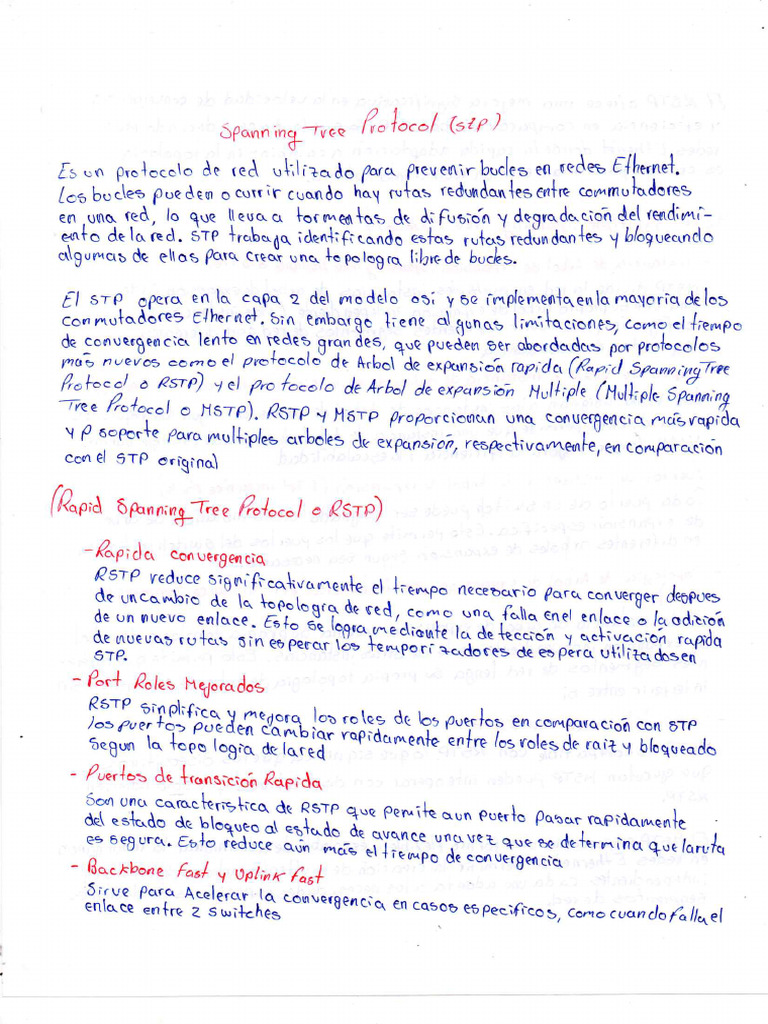 Spanning Tree Protocol (stp)
Es un protocolo de red utilizado para prevenir bucles en redes Ethernet.
Los bucles pueden ocurrir cuando hay rutas redundantes entre commutadores
en una red, lo que lleva a tormentas de difusión y degradación del rendimi-
ento de la red. STP trabaja identificando estas rutas redundantes y bloqueando
algumas de ellas para crear una topologia libre de bucles.
El STP opera en la capa 2 del modelo osi y se implementa en la mayoria de los
conmutadores Ethernet. Sin embargo tiene algunas limitaciones, como el tiempo
de convergencia lento en redes grandes, que pueden ser abordadas por protocolos
más nuevos como el protocolo de Arbol de expansión rapida (Rapid Spanning Tree
Protocol o RSTP) y el protocolo de Arbol de expansión Multiple (Multiple Spanning
Tree Protocol o MSTP). RSTP y MSTP proporcionan una convergencia más rapida
y p soporte para multiples arboles de expansión, respectivamente, en comparación
con el STP original
(Rapid Spanning Tree Protocol o RSTP)
- Rapida convergencia
RSTP reduce significativamente el tiempo necesario para converger despues
de un cambio de la topologia de red, como una falla en el enlace o la adición
de un nuevo enlace. Esto se logra mediante la detección y activación rapida
de nuevas rutas sin esperar los temporizadores de espera utilizados en
STP.
- Port Roles Mejorados
RSTP sinplifica y mejora los roles de los puertos en comparación con STP
los puertos pueden cambiar rapidamente entre los roles de raiz y bloqueado
segun la topologia de la red
- Puertos de transición Rapida
Son una caracteristica de RSTP que permite a un puerto pasar rapidamente
del estado de bloqueo al estado de avance una vez que se determina que la ruta
es segura. Esto reduce aún más el tiempo de convergencia
- Backbone Fast y Uplink Fast
Sirve para Acelerar la convergencia en casos especificos, como cuando falla el
enlace entre 2 switches